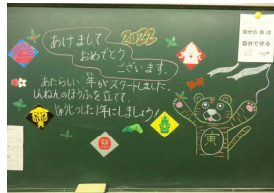 あけまして 2022
おめでとう
ございます。
あたらしい年がスタートしました。
しんねんのほうふを立てて、
じゅうじつした1年にしましょう!
寅
自分の命は
自分で守る